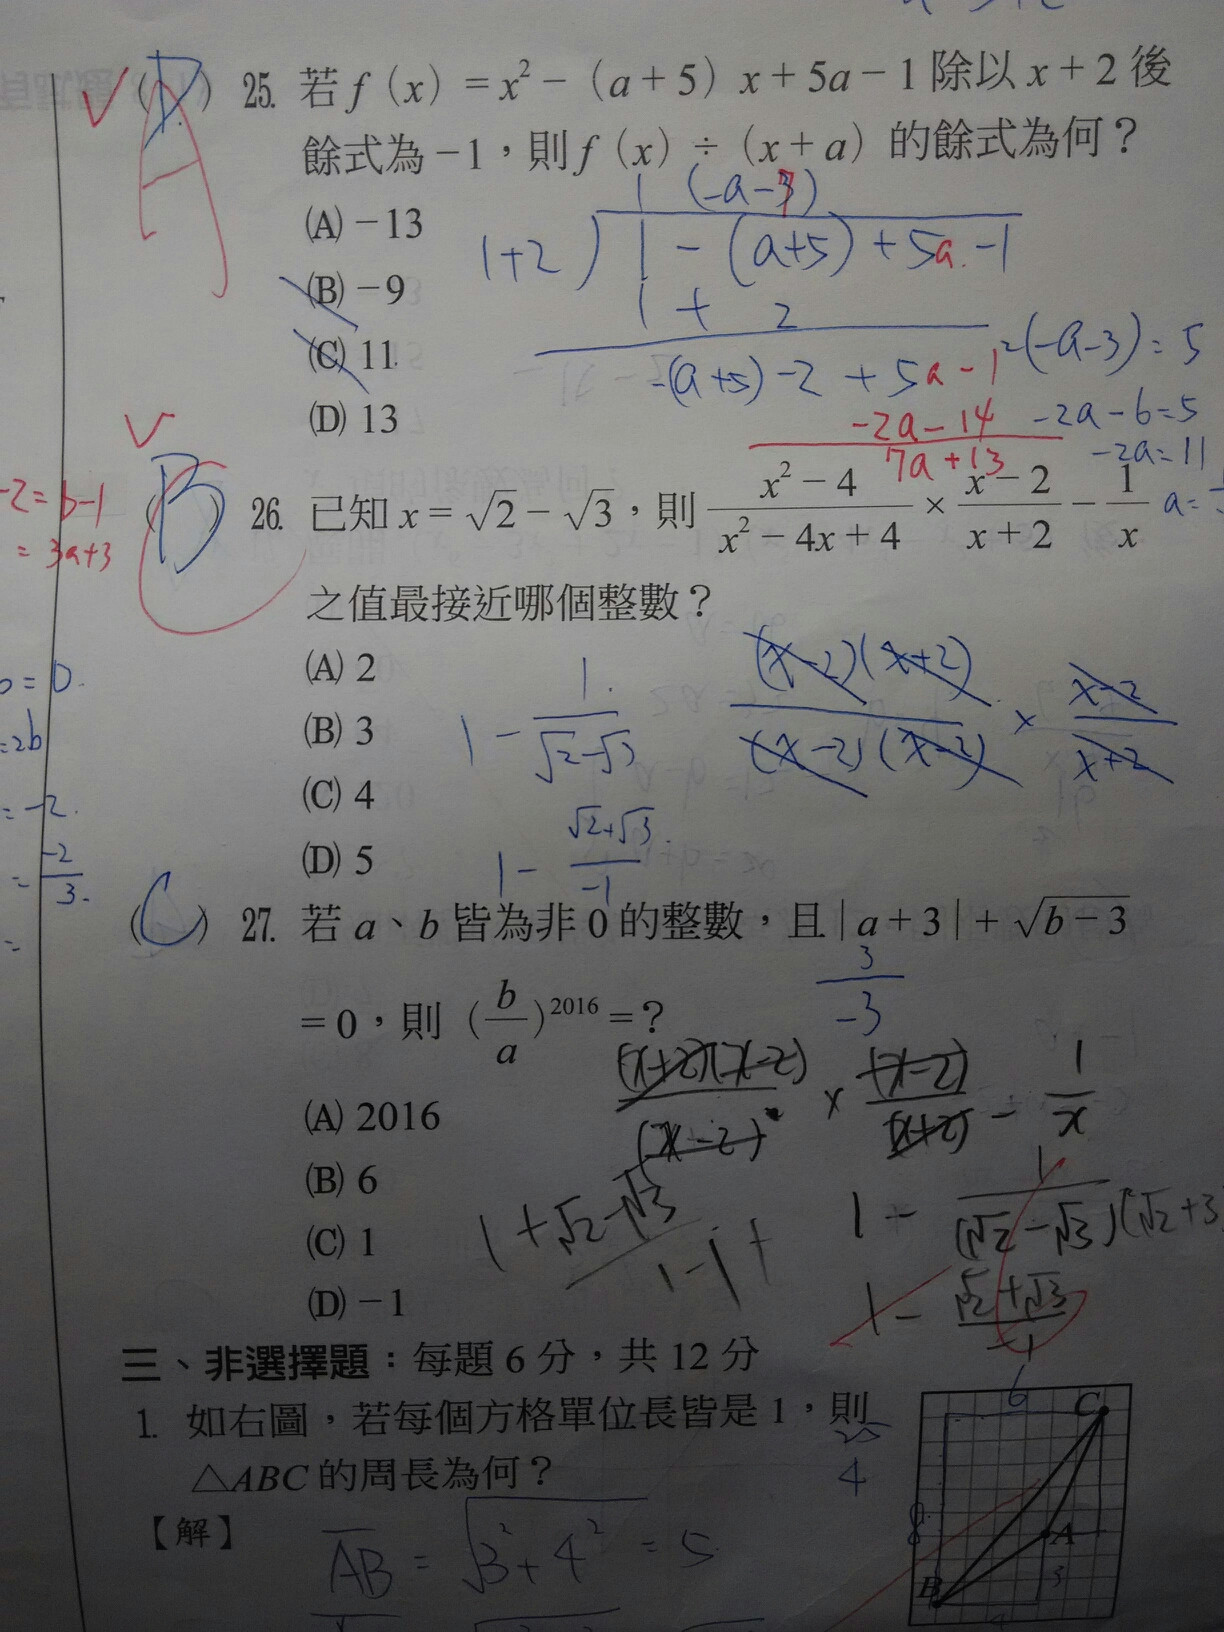 (D) 25. 若 f (x) = x² − (a + 5) x + 5a − 1 除以 x + 2 後
A
餘式為 −1，則 f (x) ÷ (x + a) 的餘式為何？
(A) −13
(B) −9
(C) 11
(D) 13
1 (-a-7)
1+2 ) 1 - (a+5) + 5a - 1
1 + 2
-(a+5) -2 + 5a - 1
-2a - 14
7a + 13
2(-a-3) = 5
-2a - 6 = 5
-2a = 11
-2 = b-1
= 3a+3
(B) 26. 已知 x = √2 − √3，則 (x² − 4)/(x² − 4x + 4) × (x − 2)/(x + 2) − 1/x
之值最接近哪個整數？
(A) 2
(B) 3
(C) 4
(D) 5
(x-2)(x+2)/(x-2)(x-2) × x-2/x+2
1 - 1/(√2-√3)
1 - (√2+√3)/-1
= 0.
=2b
= -2.
= -2/3.
=
(C) 27. 若 a、b 皆為非 0 的整數，且 | a + 3 | + √(b − 3)
= 0，則 (b/a)²⁰¹⁶ = ?
3/-3
(A) 2016
(B) 6
(C) 1
(D) −1
(x+2)(x-2)/(x-2)² × (x-2)/(x+2) - 1/x
1 - 1/(√2-√3)(√2+√3
1 - (√2+√3)/-1
三、非選擇題：每題 6 分，共 12 分
1. 如右圖，若每個方格單位長皆是 1，則
△ABC 的周長為何？
【解】
AB = √(3²+4²) = 5
6
C
8
A
3
B
4